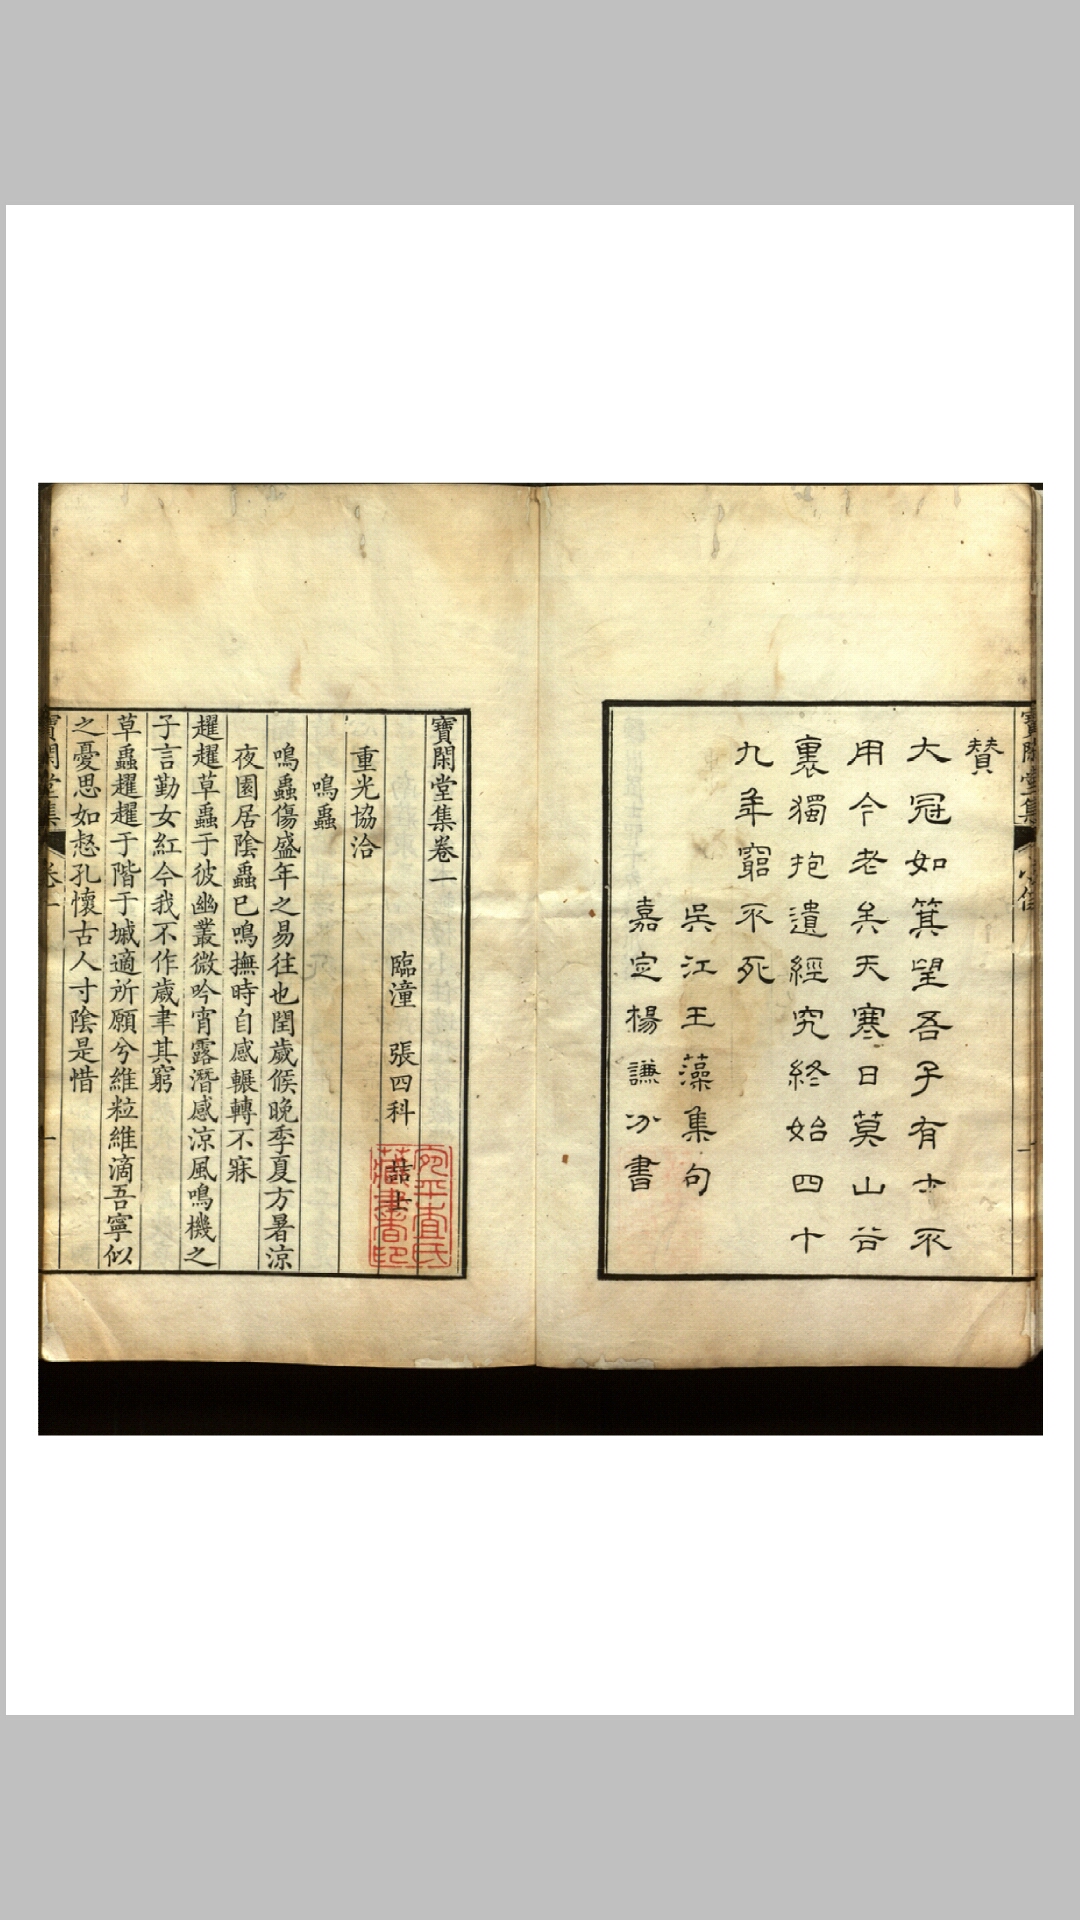 寶閑堂集
小像
一
贊
大冠如箕望吾子有古不
用今老矣天寒日莫山谷
裏獨抱遺經究終始四十
九年窮不死
吳江王藻集句
嘉定楊謙八分書
寶閑堂集卷一
臨潼 張四科 喆士
宛平查氏
藏書者印
重光協洽
鳴蟲
鳴蟲傷盛年之易往也閏歲候晚季夏方暑涼
夜園居陰蟲已鳴撫時自感輾轉不寐
趯趯草蟲于彼幽叢微吟宵露潛感涼風鳴機之
子言勤女紅今我不作歲聿其窮
草蟲趯趯于階于墄適所願兮維粒維滴吾寧似
之憂思如惄孔懷古人寸陰是惜
寶閑堂集
卷一
一